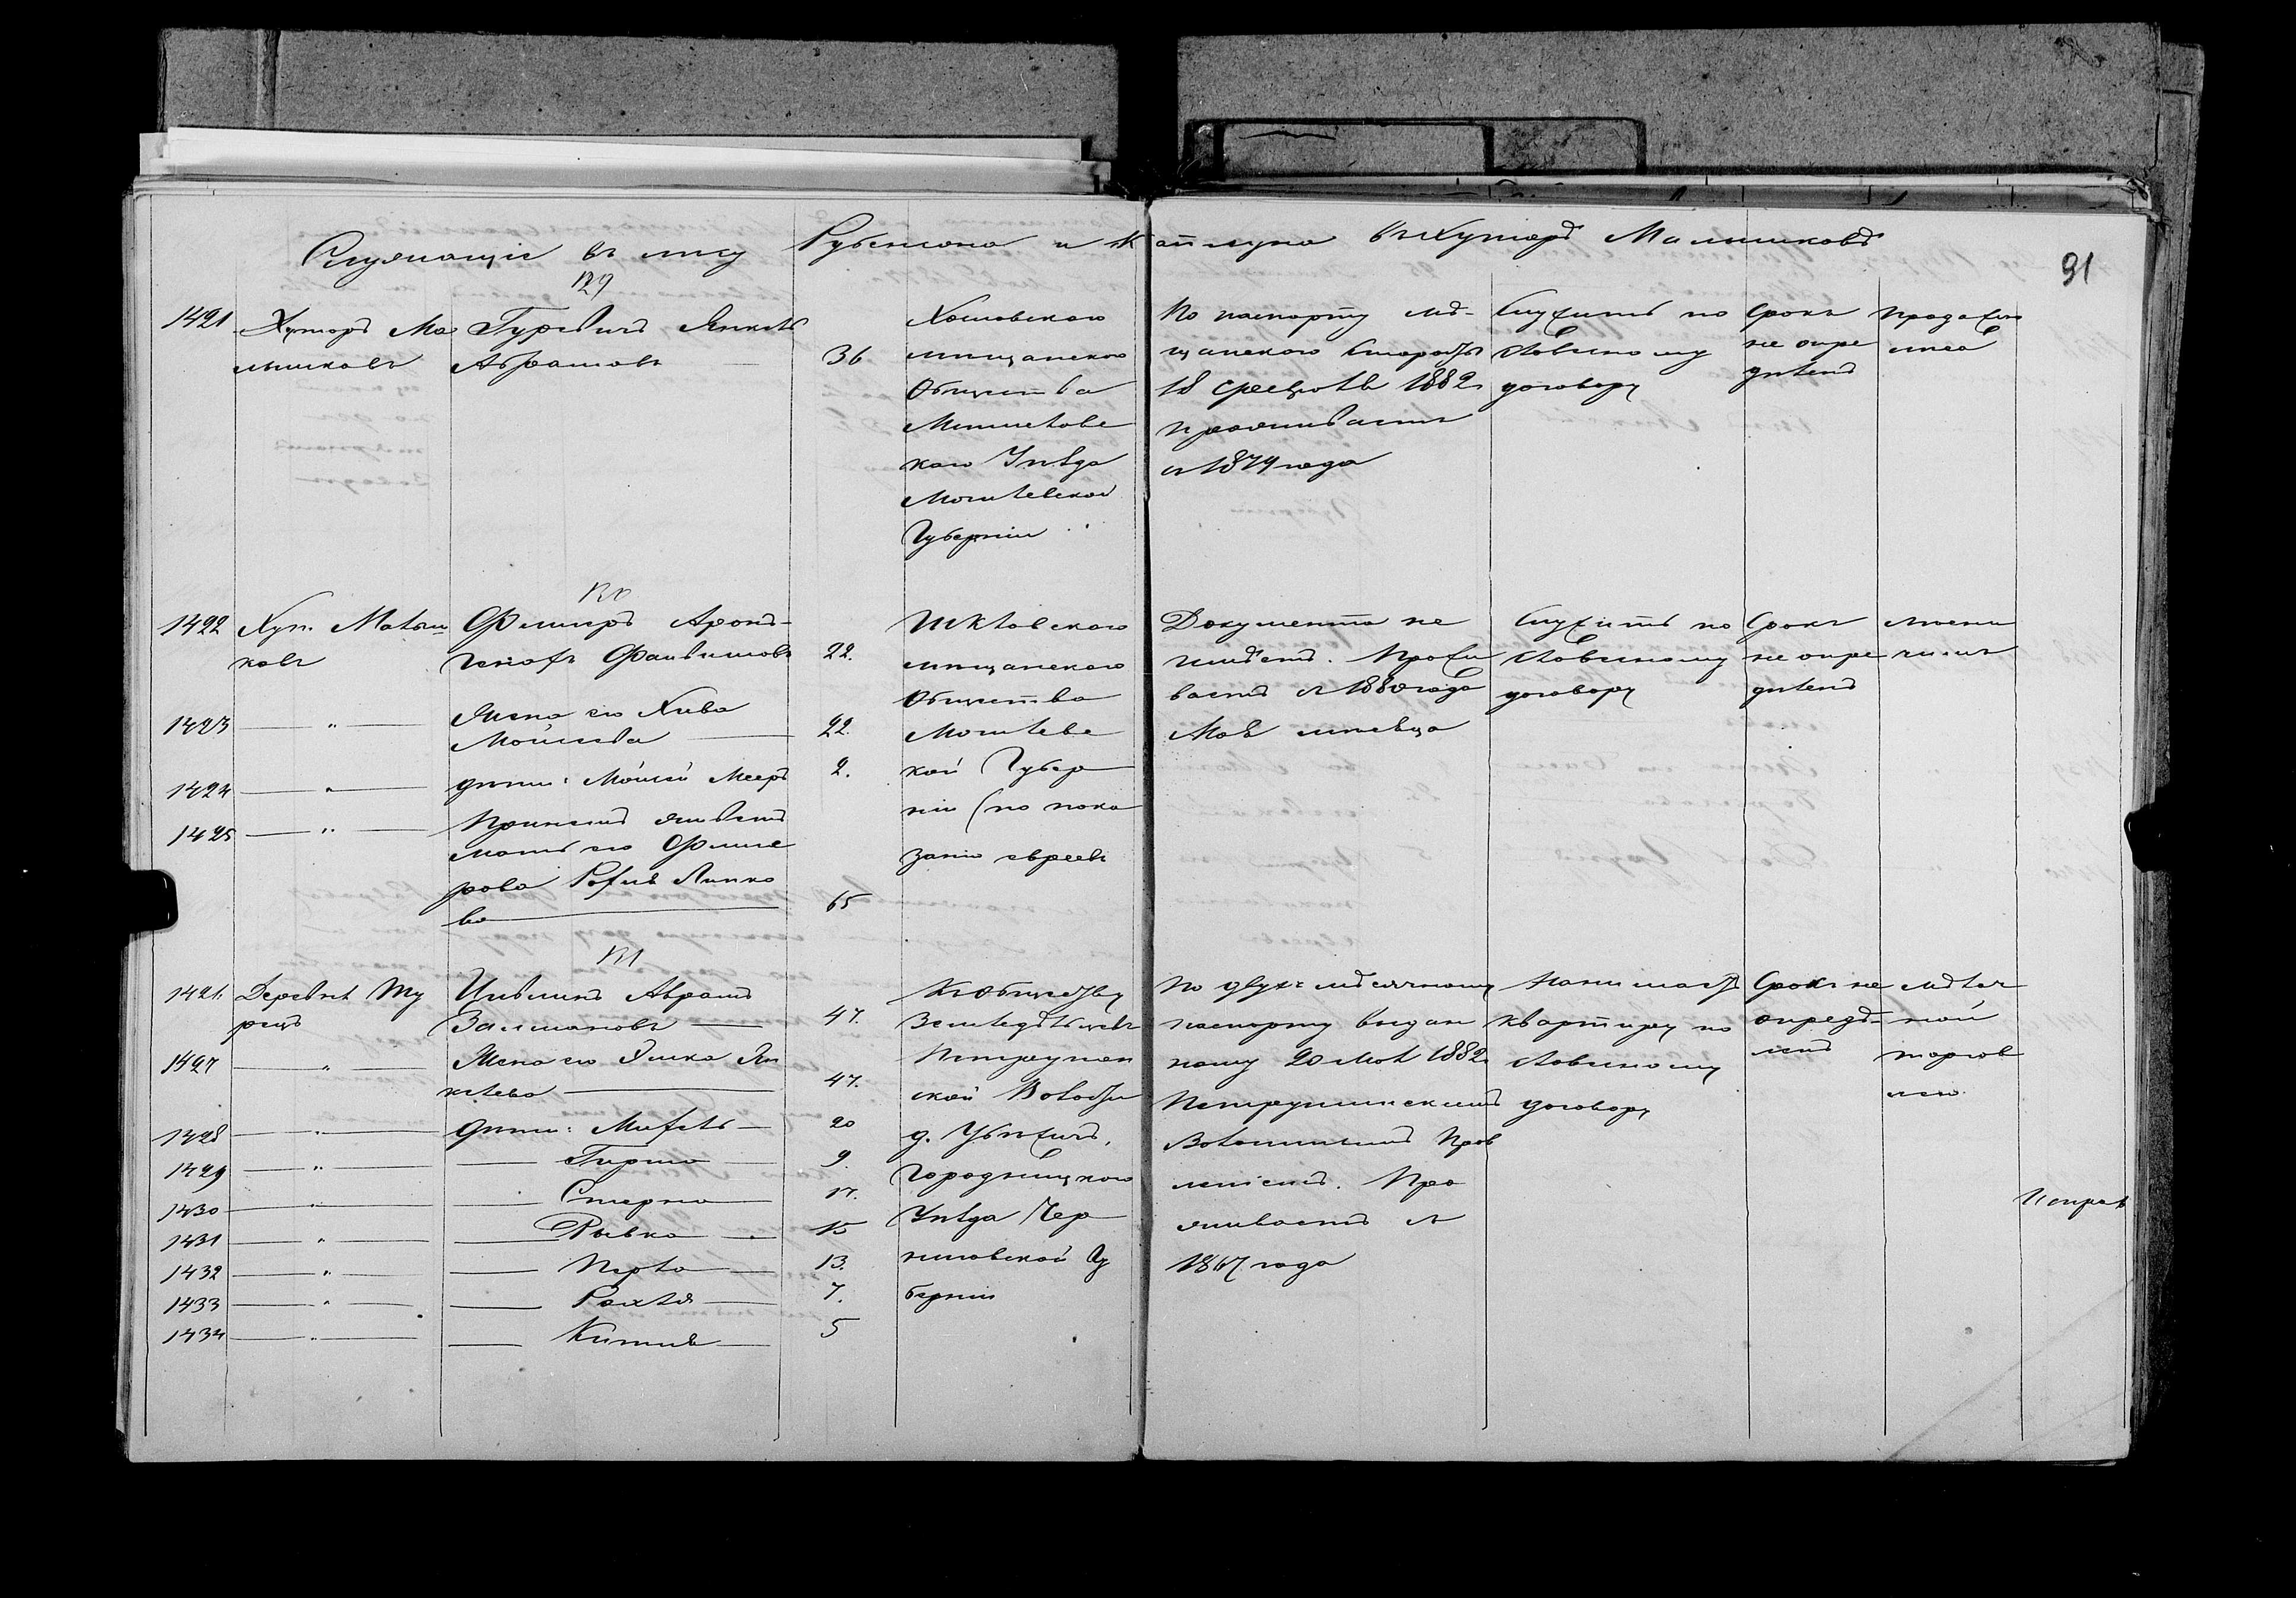 Служащіе въ лѣсу Рубенина и Каплуна въ Хуторѣ Малышковѣ
91
129
1421
Хуторъ Ма
лышковъ
Гуревичъ Янкель
Абрамовъ
36
Хославскаго
мѣщанскаго
Общества
Мстиславс
каго Уѣзда
Могилевской
Губерніи
По паспорту мѣ-
щанскаго Старосты
18 1882
проживаетъ
съ 1879 года
Служитъ по
словесному
договору
Срокъ
не опре
дѣленъ
Продажею
лѣса
130
1422
Хут. Малыш
ковъ
Фишеръ Аронъ-
Файвишовъ
22.
Шкловскаго
мѣщанскаго
Общества
Могилевс
кой Губер
ніи (по пока
занію евреевъ
Документа не
имѣетъ. Прожи
ваетъ съ 1880 года
Мая мѣсяца
Служитъ по
словесному
договору
Срокъ
не опре
дѣленъ
1423
"
Жена его Хива
Мойшева
22.
1424
"
дѣти: Мойсѣй Мееръ
2.
1425
"
При немъ живетъ
мать его Фише
рова Янке
ва
65
131
1426.
Деревня Ту
рецъ
Цивлинъ Абрамъ
Залмановъ
47.
Къ Обществу
Земледѣльцевъ
Петрушин
ской Волости
д. Убѣжичъ,
Городницкаго
Уѣзда Чер
ниговской Гу
берніи
По двухъ мѣсячному
паспорту выдан
ному 20 Мая 1882
Петрушинскимъ
Волостнымъ Прав
леніемъ. Про
живаетъ съ
1867 года
Нанимаетъ
квартиру по
словесному
договору
Срокъ не
опредѣ-
ленъ
мѣлоч
ной
торгов
лею.
1427
"
Жена его Элька Ян
келева
47.
1428
"
дѣти:
20
1429
"
Гирша
9.
1430
"
Стерна
17.
1431
"
Рывка
15
1432
"
Перла
13.
1433
"
Рахля
7.
1434
"
5
Исправ